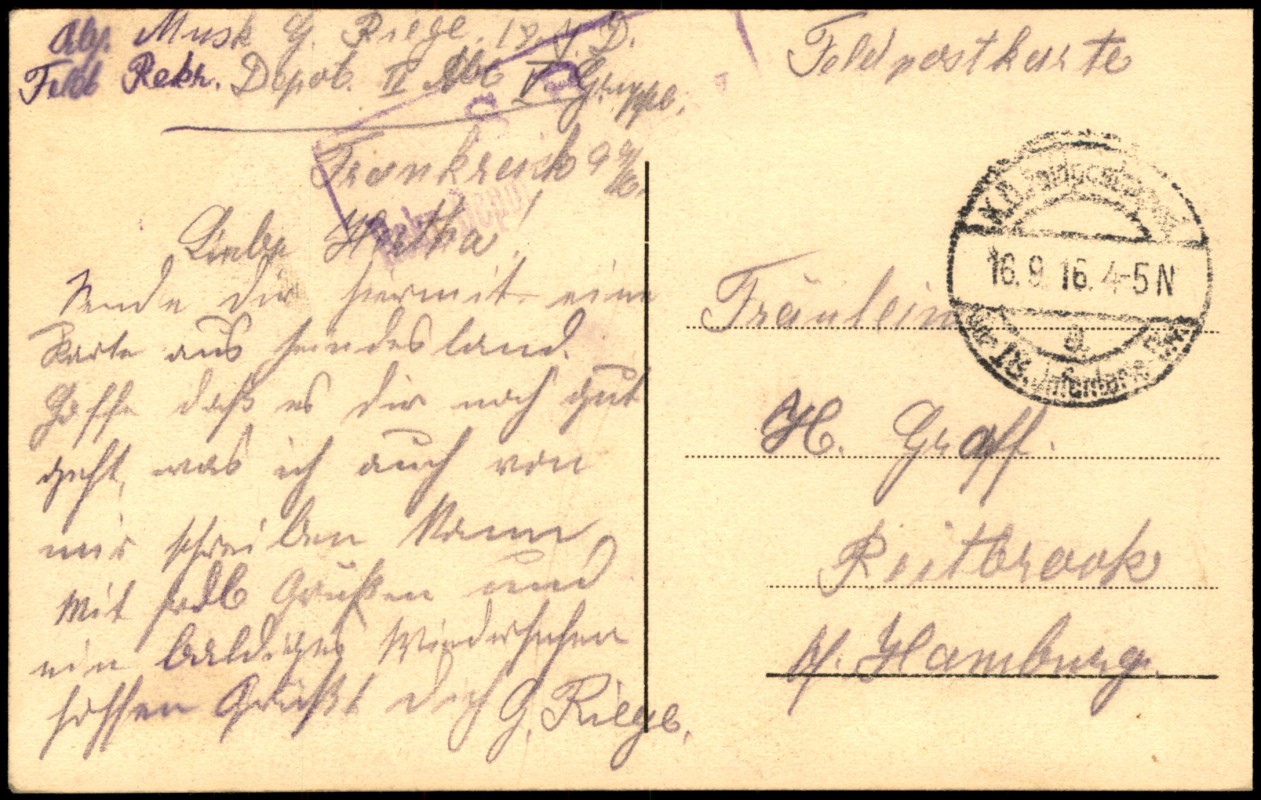 Abs. Musk G. Riege, 18. J. D.
Feld Rekr. Depot. II Abt V Gruppe.
Frankreich 9 9/16.
Liebe Hertha!
Sende dir hiermit eine
Karte aus feindesland.
Hoffe daß es dir noch gut
geht, was ich auch von
mir schreiben kann
Mit Grüßen und
ein baldiges Wiedersehen
hoffen Grüßt dich G. Riege.
Feldpostkarte
Fräulein
H. Graff.
Reitbrook
b/. Hamburg.
K.D. Feldpostexped.
16. 9. 16. 4-5 N
a
der 18. Infanterie Div.
Depot